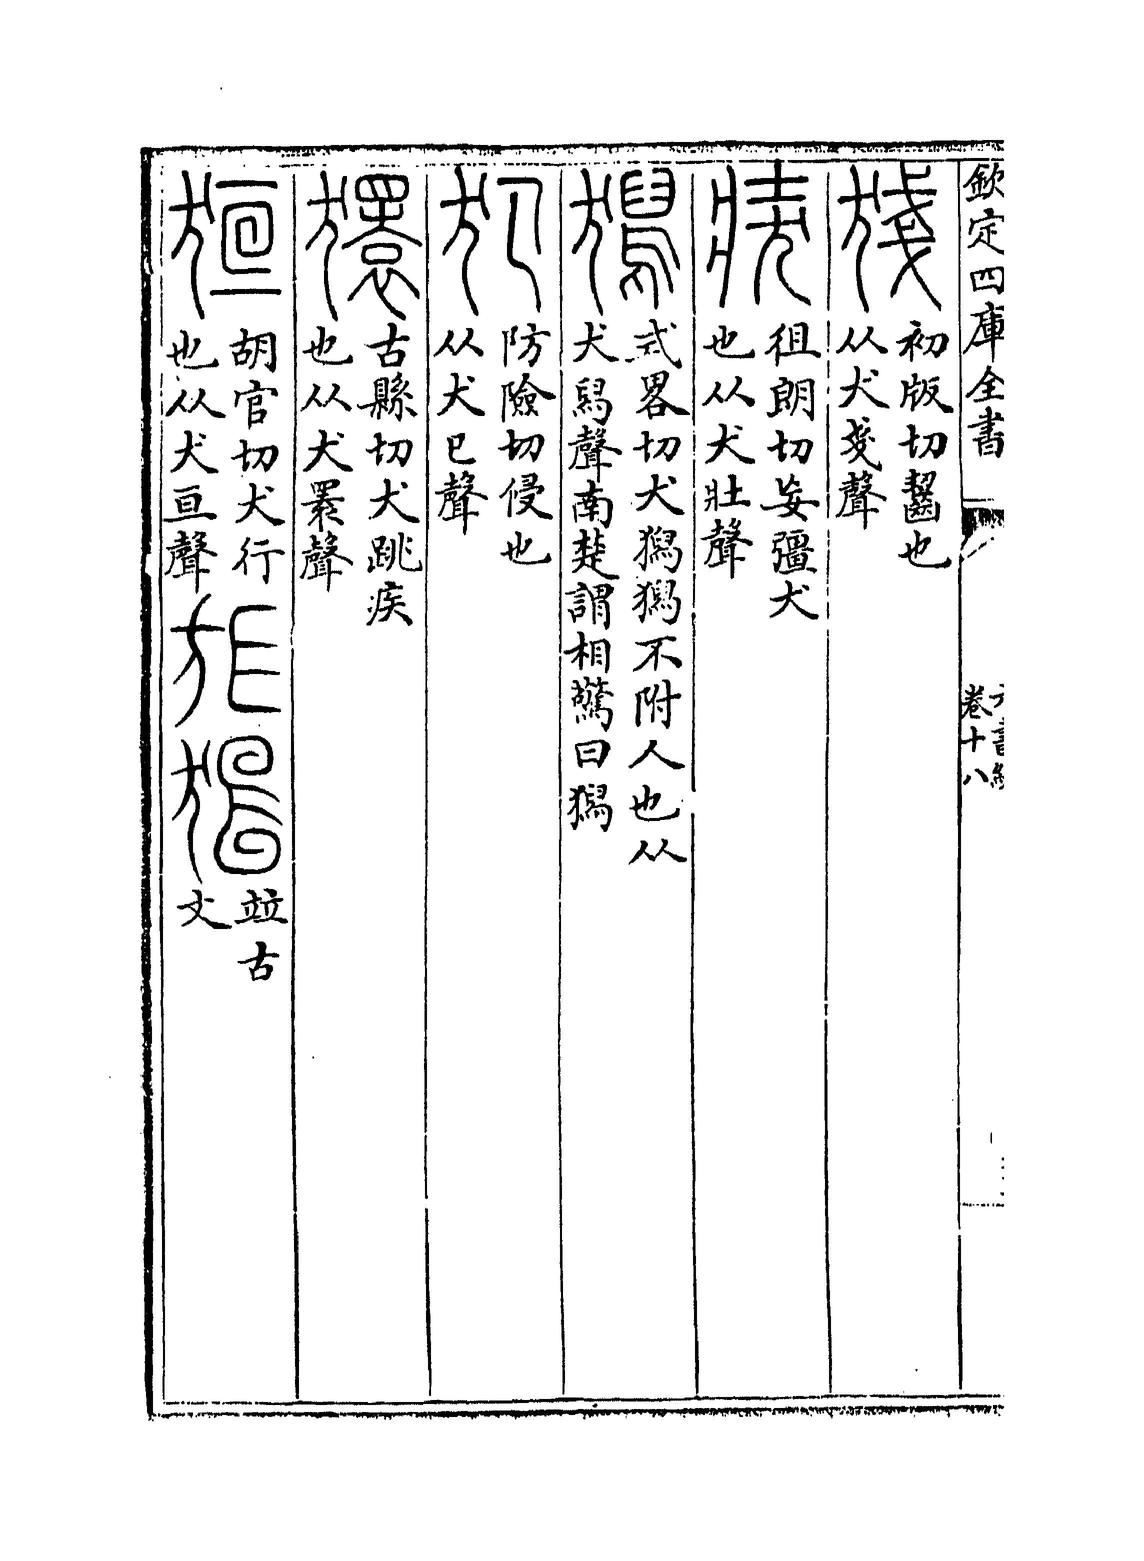 欽定四庫全書
卷十八
初版切齧也
从犬戔聲
奘
徂朗切妄彊犬
也从犬壯聲
獡
式畧切犬獡獡不附人也从
犬舄聲南楚謂相驚曰獡
犯
防險切侵也
从犬㔾聲
獧
古縣切犬跳疾
也从犬瞏聲
狟
胡官切犬行
也从犬亘聲
竝古
文